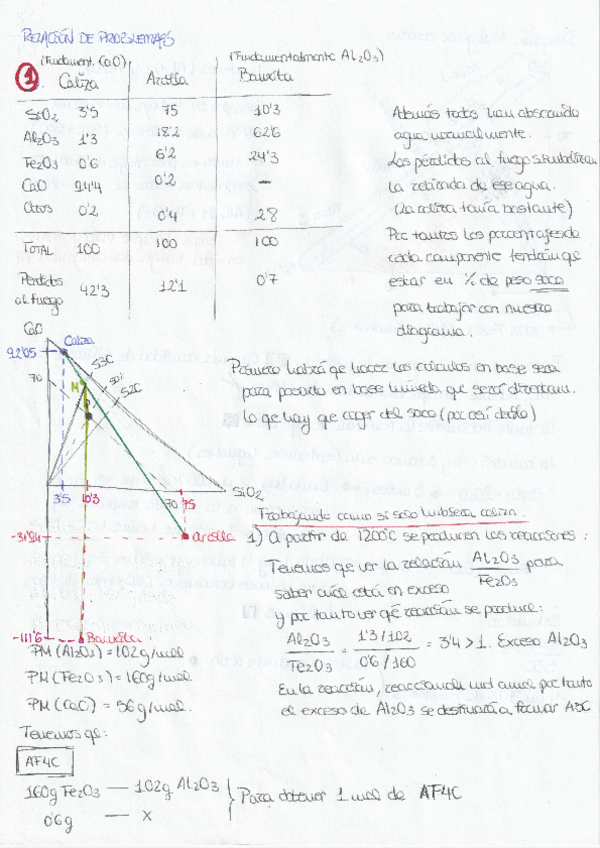 RELACIÓN DE PROBLEMAS
(Fundament. CaO) (Fundamentalmente Al2O3)
1 Caliza Arcilla Bauxita
SiO2 3'5 75 10'3
Al2O3 1'3 18'2 62'6
Fe2O3 0'6 6'2 24'3
CaO 94'4 0'2 —
Otros 0'2 0'4 2'8
TOTAL 100 100 100
Pérdidas al fuego 42'3 12'1 0'7
Además todos han absorbido
agua normalmente.
Las pérdidas al fuego simbolizan
la retirada de ese agua.
(la caliza tenía bastante)
Por tanto los porcentajes de
cada componente tendrán que
estar en % de peso seco
para trabajar con nuestro
diagrama.
CaO
Caliza
92'05
S3C
S2C
70
M
P
SiO2
3'5 10'3 70 75
-31'24 Arcilla
-111'6 Bauxita
Primero habrá que hacer los cálculos en base seca
para pasarlo en base húmeda que será directam.
lo que hay que coger del saco (por así decirlo)
Trabajando como si solo hubiera caliza.
1) A partir de 1200°C se producen las reacciones:
Tenemos que ver la relación Al2O3/Fe2O3 para
saber cuál está en exceso
y por tanto ver qué reacción se produce:
Al2O3/Fe2O3 = 1'3/102 / 0'6/160 = 3'4 > 1. Exceso Al2O3
En la reacción, reaccionan mol a mol, por tanto
el exceso de Al2O3 se destinará a formar A3C
PM (Al2O3) = 102 g/mol
PM (Fe2O3) = 160 g/mol
PM (CaO) = 56 g/mol.
Tenemos q:
AF4C
160g Fe2O3 — 102g Al2O3
0'6g — x
Para obtener 1 mol de AF4C